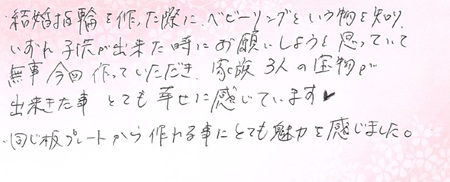 結婚指輪を作った際に、ベビーリングという物を知り、
いずれ子供が出来た時にお願いしようと思っていて
無事今回作っていただき、家族3人の宝物が
出来きた事 とても幸せに感じています♥
同じ板プレートから作れる事にとても魅力を感じました。